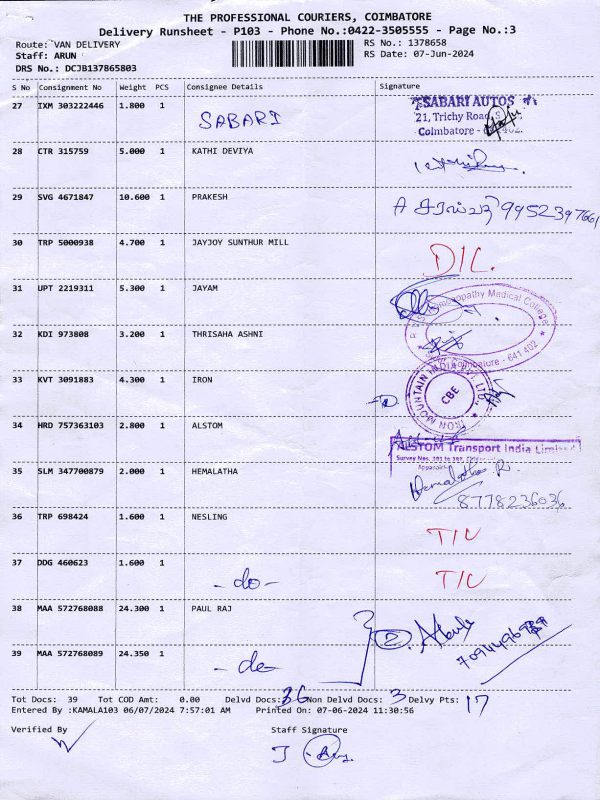 THE PROFESSIONAL COURIERS, COIMBATORE
Delivery Runsheet - P103 - Phone No.:0422-3505555 - Page No.:3
Route: VAN DELIVERY RS No.: 1378658
Staff: ARUN RS Date: 07-Jun-2024
DRS No.: DCJB137865803
S No Consignment No Weight PCS Consignee Details Signature
27 IXM 303222446 1.800 1 SABARI SABARI AUTOS
21, Trichy Road,
Coimbatore -
28 CTR 315759 5.000 1 KATHI DEVIYA
29 SVG 4671847 10.600 1 PRAKESH A 9952397661
30 TRP 5000938 4.700 1 JAYJOY SUNTHUR MILL D/C.
31 UPT 2219311 5.300 1 JAYAM
Homoeopathy Medical College
32 KDI 973808 3.200 1 THRISAHA ASHNI
Coimbatore - 641 402
33 KVT 3091883 4.300 1 IRON IRON MOUNTAIN INDIA PVT. LTD.,
CBE
34 HRD 757363103 2.800 1 ALSTOM
ALSTOM Transport India Limited
35 SLM 347700879 2.000 1 HEMALATHA Hemalatha R.
8778236036
36 TRP 698424 1.600 1 NESLING T/C
37 DDG 460623 1.600 1 -do- T/C
38 MAA 572768088 24.300 1 PAUL RAJ 2
39 MAA 572768089 24.350 1 -do-
Tot Docs: 39 Tot COD Amt: 0.00 Delvd Docs: 36 Non Delvd Docs: 3 Delvy Pts: 17
Entered By :KAMALA103 06/07/2024 7:57:01 AM Printed On: 07-06-2024 11:30:56
Verified By Staff Signature